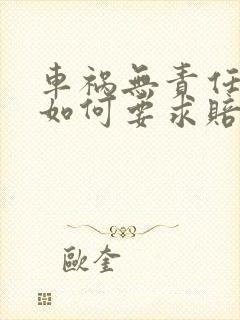 車禍無責任
如何要求賠
歐奎